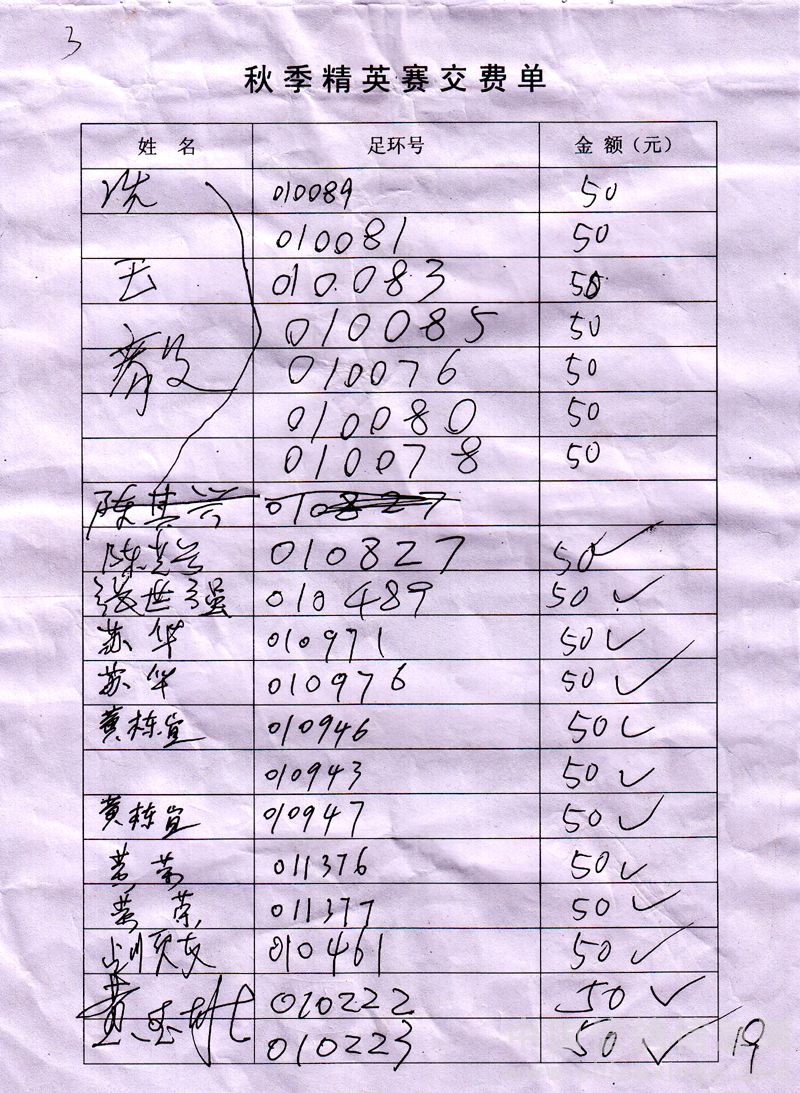 3
秋季精英赛交费单
姓 名 足环号 金 额（元）
冼 010089 50
010081 50
云 010083 50
010085 50
010076 50
010080 50
010078 50
陈其兴 010827
陈其兴 010827 50 ✓
张世强 010489 50 ✓
苏华 010971 50 ✓
苏华 010976 50 ✓
黄栋宜 010946 50 ✓
010943 50 ✓
黄栋宜 010947 50 ✓
荣 011376 50 ✓
荣 011377 50 ✓
友 010461 50 ✓
黄 010222 50 ✓
010223 50 ✓ 19